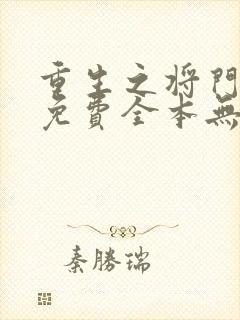 重生之将門
免費全本無
秦勝瑞